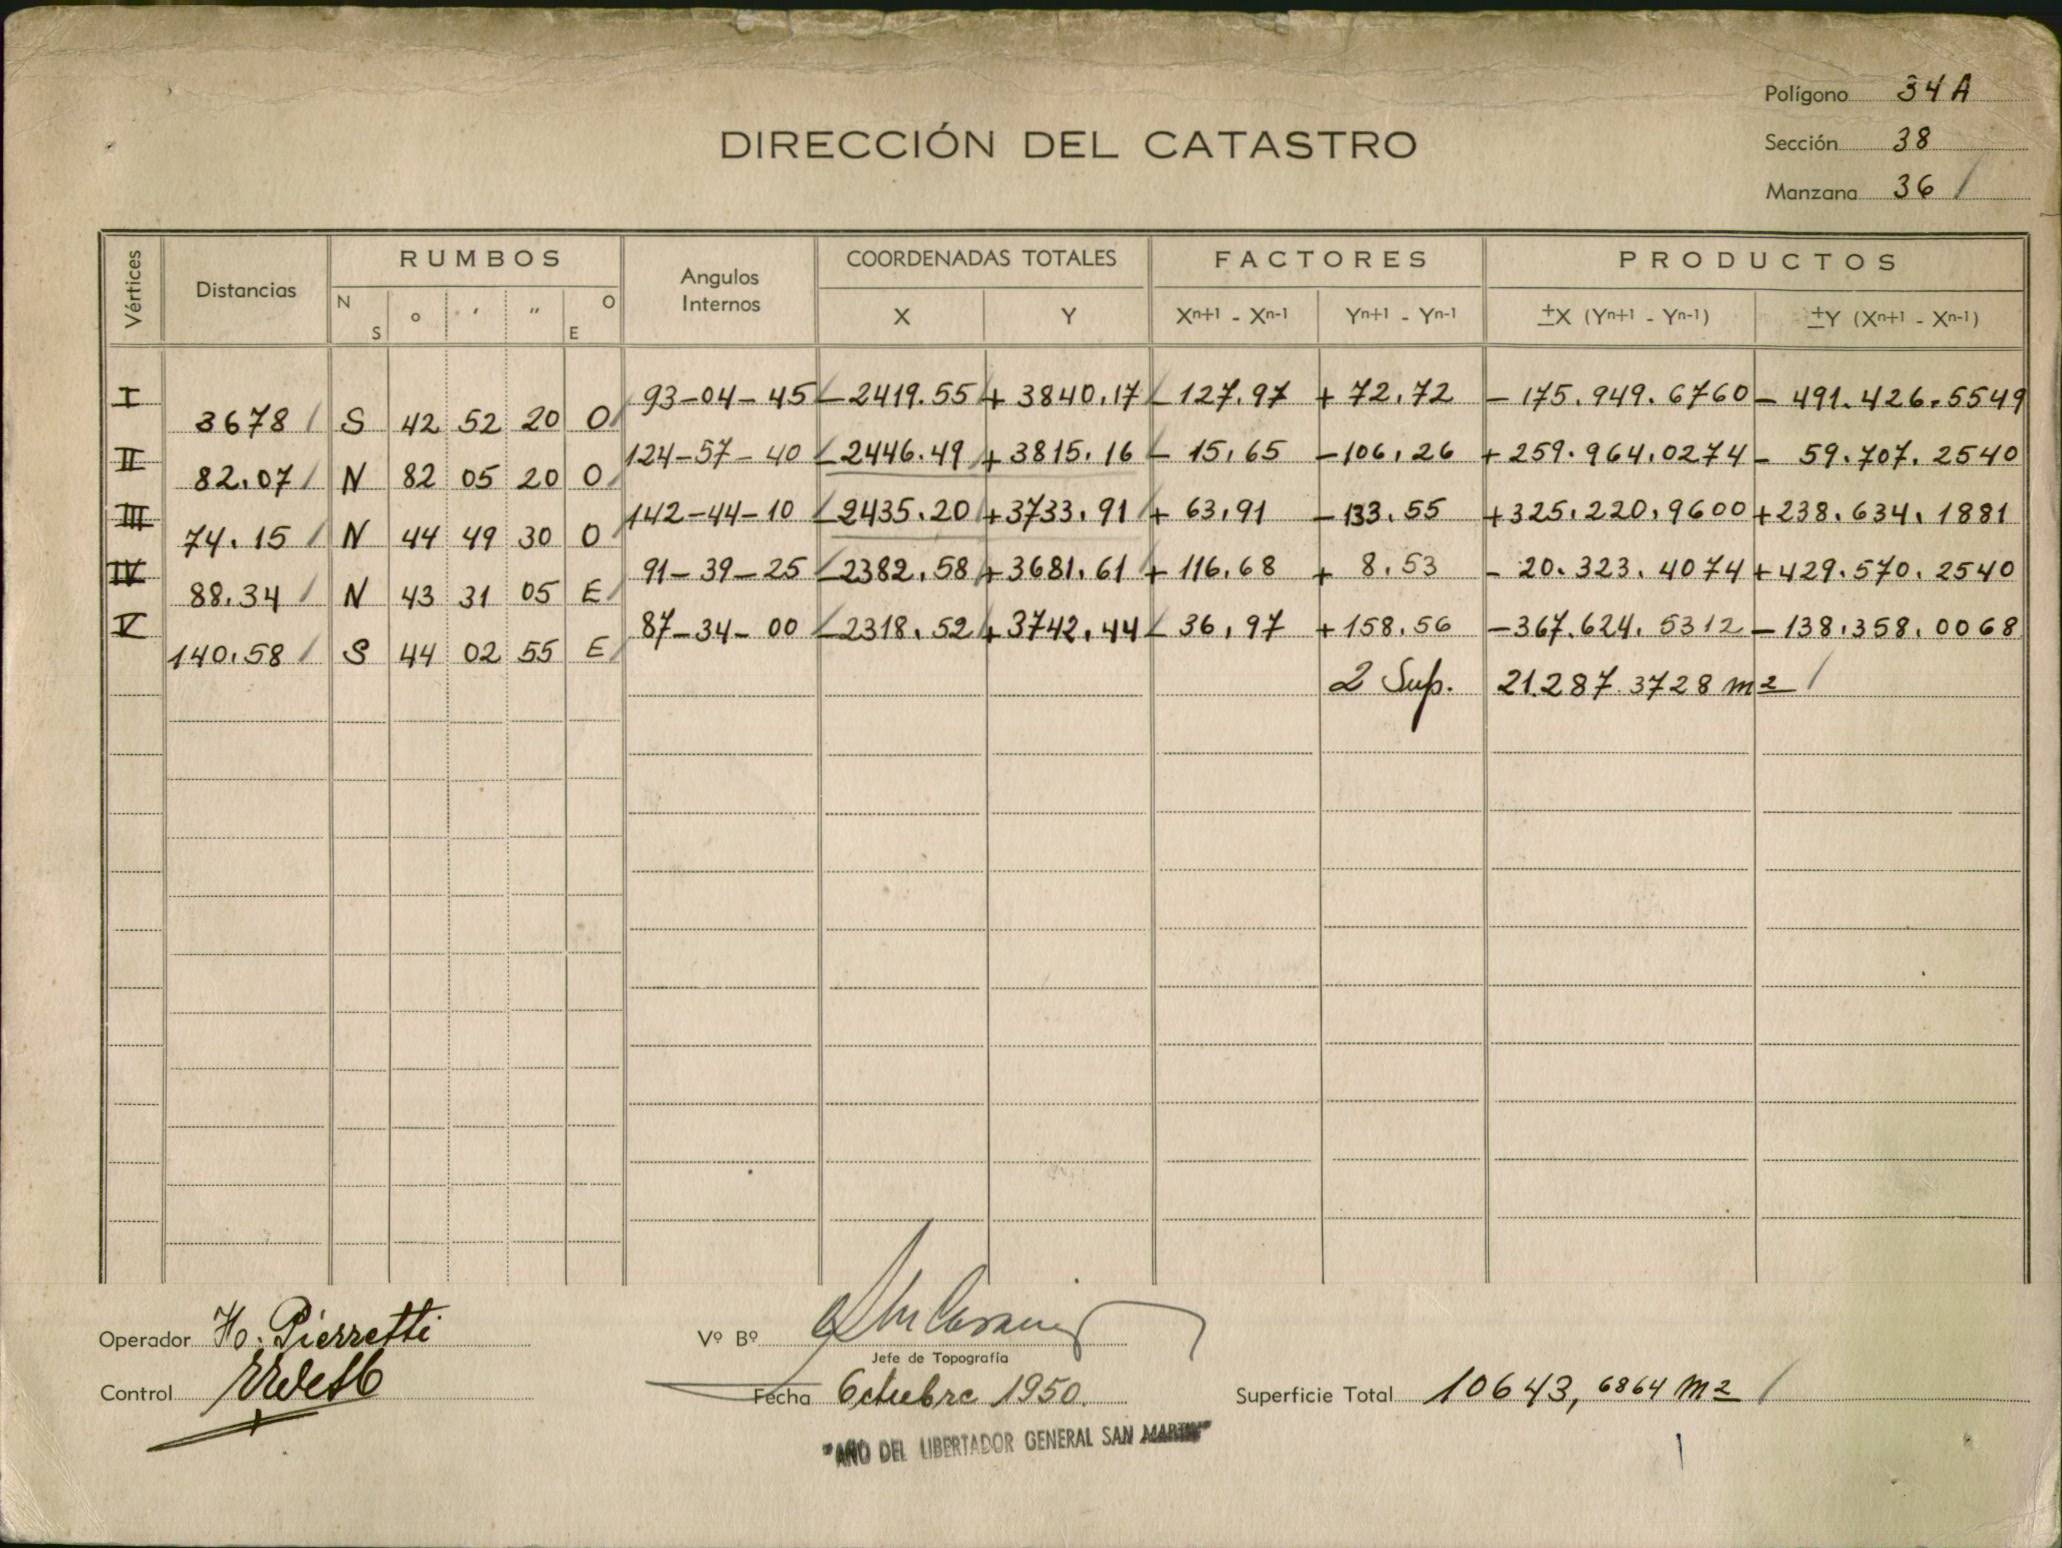 Polígono 34 A
DIRECCIÓN DEL CATASTRO
Sección 38
Manzana 36 /
Vértices Distancias RUMBOS Angulos Internos COORDENADAS TOTALES FACTORES PRODUCTOS
N S ° ' " O E X Y Xⁿ⁺¹ - Xⁿ⁻¹ Yⁿ⁺¹ - Yⁿ⁻¹ ±X (Yⁿ⁺¹ - Yⁿ⁻¹) ±Y (Xⁿ⁺¹ - Xⁿ⁻¹)
I 93-04-45 -2419.55 + 3840,17 - 127,97 + 72,72 - 175.949.6760 - 491.426.5549
3678 / S 42 52 20 O
II 124-57-40 -2446.49 + 3815,16 - 15,65 -106,26 +259.964,0274 - 59.707.2540
82.07 / N 82 05 20 O
III 142-44-10 -2435.20 +3733,91 + 63,91 -133.55 +325.220,9600 +238.634,1881
74.15 / N 44 49 30 O
IV 91-39-25 -2382,58 +3681,61 + 116,68 + 8.53 - 20.323.4074 +429.570.2540
88.34 / N 43 31 05 E
V 87-34-00 -2318.52 +3742,44 - 36,97 +158,56 -367.624.5312 -138.358.0068
140.58 / S 44 02 55 E
2 Sup. 21.287.3728 m2 /
Operador Ho. Pierretti
Vº Bº
Jefe de Topografía
Control
Fecha Octubre 1950.
Superficie Total 10643,6864 m2 /
"AÑO DEL LIBERTADOR GENERAL SAN MARTIN"